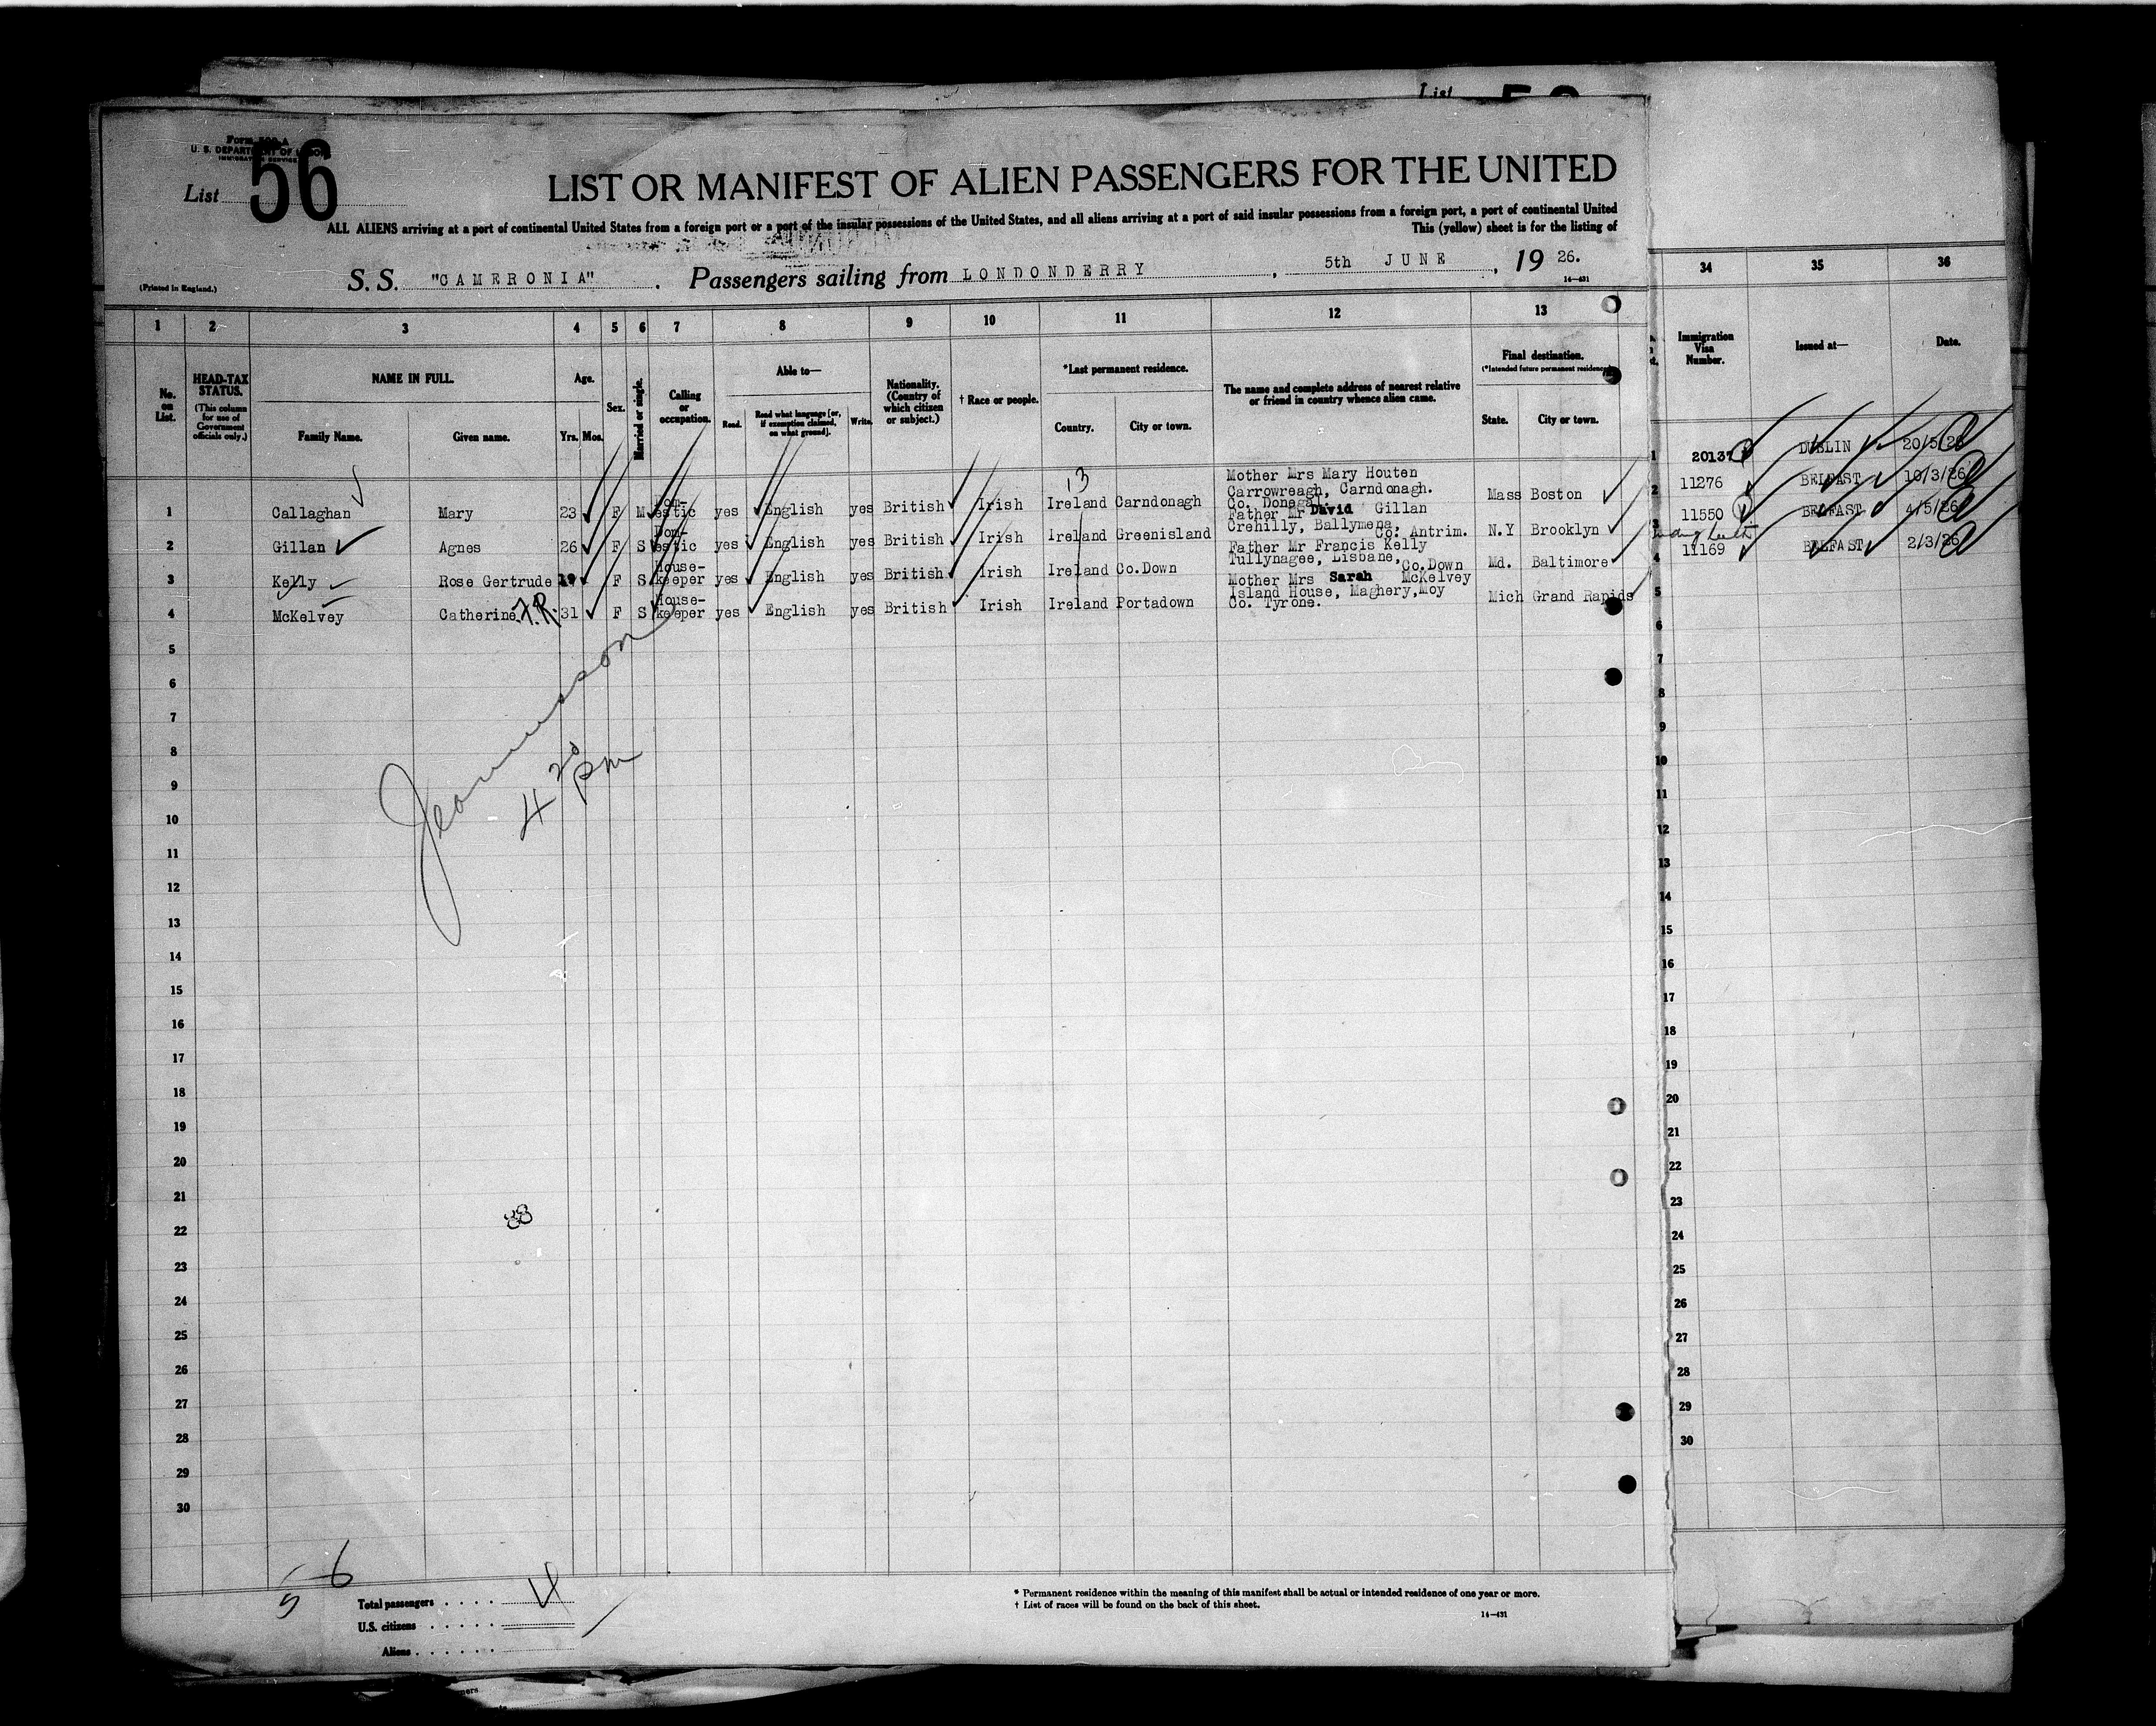 List
Form 500-A
U. S. DEPARTMENT OF LABOR
IMMIGRATION SERVICE
List 56
LIST OR MANIFEST OF ALIEN PASSENGERS FOR THE UNITED
ALL ALIENS arriving at a port of continental United States from a foreign port or a port of the insular possessions of the United States, and all aliens arriving at a port of said insular possessions from a foreign port, a port of continental United
This (yellow) sheet is for the listing of
(Printed in England.)
S. S. "CAMERONIA" . Passengers sailing from LONDONDERRY , 5th JUNE , 19 26.
14-431
1 2 3 4 5 6 7 8 9 10 11 12 13 34 35 36
No. on List.
HEAD-TAX STATUS.
(This column for use of Government officials only.)
NAME IN FULL.
Family Name. Given name.
Age.
Yrs. Mos.
Sex.
Married or single.
Calling or occupation.
Able to—
Read. Read what language [or, if exemption claimed, on what ground]. Write.
Nationality. (Country of which citizen or subject.)
† Race or people.
*Last permanent residence.
Country. City or town.
The name and complete address of nearest relative or friend in country whence alien came.
Final destination.
(*Intended future permanent residence)
State. City or town.
Immigration Visa Number.
Issued at—
Date.
13
1 Callaghan Mary 23 F M Dom-estic yes English yes British Irish Ireland Carndonagh Mother Mrs Mary Houten Carrowreagh, Carndonagh. Co. Donegal. Mass Boston
2 Gillan Agnes 26 F S Dom-estic yes English yes British Irish Ireland Greenisland Father Mr David Gillan Crehilly, Ballymena, Co. Antrim. N.Y Brooklyn
3 Kelly Rose Gertrude 19 F S House-keeper yes English yes British Irish Ireland Co.Down Father Mr Francis Kelly Tullynagee, Lisbane, Co.Down Md. Baltimore
4 McKelvey Catherine F.R. 31 F S House-keeper yes English yes British Irish Ireland Portadown Mother Mrs Sarah McKelvey Island House, Maghery, Moy Co. Tyrone. Mich Grand Rapids
1 20137 DUBLIN 20/5/26
2 11276 BELFAST 10/3/26
3 11550 BELFAST 4/5/26
4 11169 BELFAST 2/3/26
5
6
7
8
9
10
11
12
13
14
15
16
17
18
19
20
21
22
23
24
25
26
27
28
29
30
5
6
7
8
9
10
11
12
13
14
15
16
17
18
19
20
21
22
23
24
25
26
27
28
29
30
4 20 pm
5 6
Total passengers . . . . 4
U.S. citizens . . . . .
Aliens . . . . . .
* Permanent residence within the meaning of this manifest shall be actual or intended residence of one year or more.
† List of races will be found on the back of this sheet.
14-431